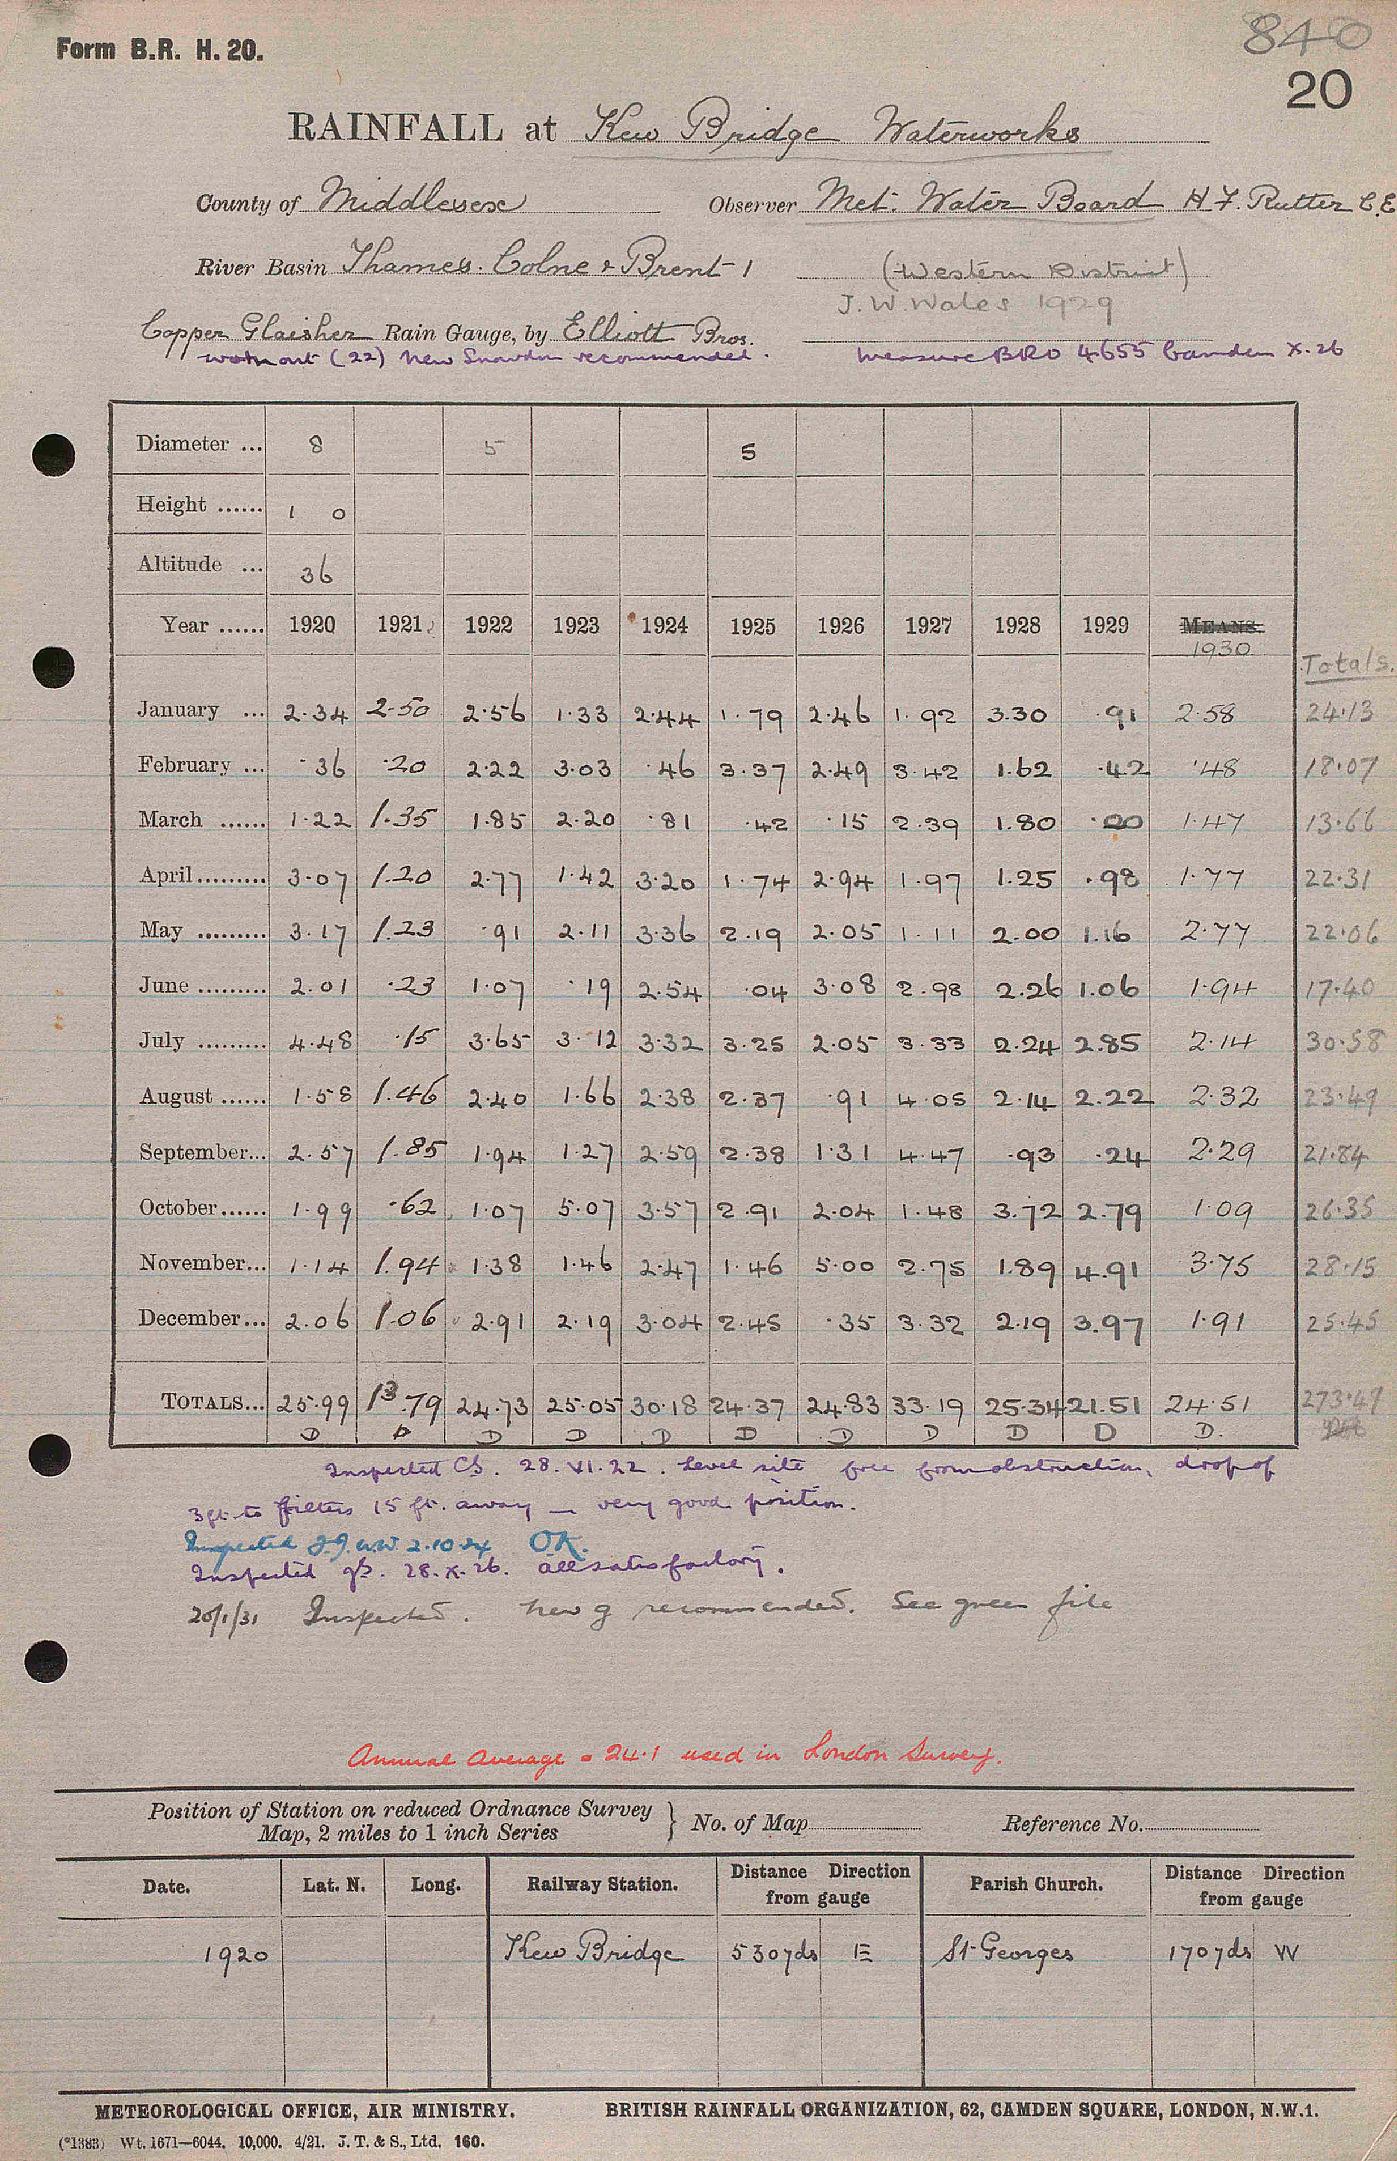 Form B.R. H. 20.
840
20
RAINFALL at Kew Bridge Waterworks
County of Middlesex Observer Met. Water Board H F. Rutter C.E
River Basin Thames. Colne & Brent 1 (Western District)
J. W. Wales 1929
Copper Glaisher Rain Gauge, by Elliott Bros.
worn out (22) New Snowdon recommended. Measure BRO 4655 Camden X.26
Diameter ... 8 5 5
Height ...... 1 0
Altitude ... 36
Year ...... 1920 1921 1922 1923 1924 1925 1926 1927 1928 1929 MEANS.
1930 Totals.
January ... 2.34 2.50 2.56 1.33 2.44 1.79 2.46 1.92 3.30 .91 2.58 24.13
February ... .36 .20 2.22 3.03 .46 3.37 2.49 3.42 1.62 .42 .48 18.07
March ...... 1.22 1.35 1.85 2.20 .81 .42 .15 2.39 1.80 .00 1.47 13.66
April ......... 3.07 1.20 2.77 1.42 3.20 1.74 2.94 1.97 1.25 .98 1.77 22.31
May ......... 3.17 1.23 .91 2.11 3.36 2.19 2.05 1.11 2.00 1.16 2.77 22.06
June ......... 2.01 .23 1.07 .19 2.54 .04 3.08 2.98 2.26 1.06 1.94 17.40
July ......... 4.48 .15 3.65 3.12 3.32 3.25 2.05 3.33 2.24 2.85 2.14 30.58
August ...... 1.58 1.46 2.40 1.66 2.38 2.37 .91 4.05 2.14 2.22 2.32 23.49
September... 2.57 1.85 1.94 1.27 2.59 2.38 1.31 4.47 .93 .24 2.29 21.84
October ...... 1.99 .62 1.07 5.07 3.57 2.91 2.04 1.48 3.72 2.79 1.09 26.35
November... 1.14 1.94 1.38 1.46 2.47 1.46 5.00 2.75 1.89 4.91 3.75 28.15
December... 2.06 1.06 2.91 2.19 3.04 2.45 .35 3.32 2.19 3.97 1.91 25.45
TOTALS... 25.99 13.79 24.73 25.05 30.18 24.37 24.83 33.19 25.34 21.51 24.51 273.49
D D D D D D D D D D D.
Inspected CS. 28. VI. 22. Level site free from obstruction, drop of
3ft to filters 15 ft. away — very good position.
Inspected 2.10.24 OK.
Inspected 28.X.26. all satisfactory.
20/1/31 Inspected. New g recommended. See green file
Annual Average = 24.1 used in London Survey.
Position of Station on reduced Ordnance Survey
Map, 2 miles to 1 inch Series } No. of Map Reference No.
Date. Lat. N. Long. Railway Station. Distance Direction from gauge Parish Church. Distance Direction from gauge
1920 Kew Bridge 530yds E St Georges 170yds W
METEOROLOGICAL OFFICE, AIR MINISTRY. BRITISH RAINFALL ORGANIZATION, 62, CAMDEN SQUARE, LONDON, N.W.1.
(*1383) Wt. 1671—6044. 10,000. 4/21. J. T. & S., Ltd. 160.